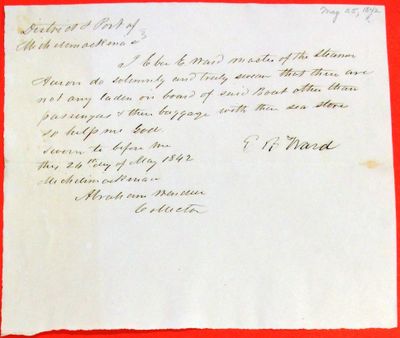 May 25, 1842
District & Port of
Michilimackinac
I Eber B Ward master of the steamer
Huron do solemnly and truly swear that there are
not any laden on board of said Boat other than
passengers & their baggage with the sea store
so help me God.
sworn to before me
this 24th day of May 1842
Michilimackinac
E B Ward
Abraham Wendell
Collector